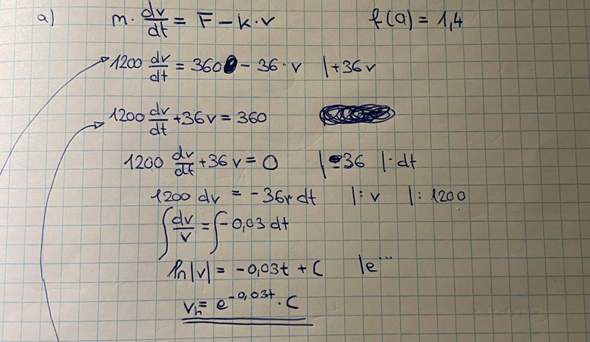 a) m · dv/dt = F - k · v f(0) = 1,4
1200 dv/dt = 360 - 36 · v |+36v
1200 dv/dt + 36v = 360
1200 dv/dt + 36v = 0 |-36 | · dt
1200 dv = -36v dt |: v |: 1200
∫ dv/v = ∫ -0,03 dt
ln|v| = -0,03t + C |e^...
v_h = e^{-0,03t} · C